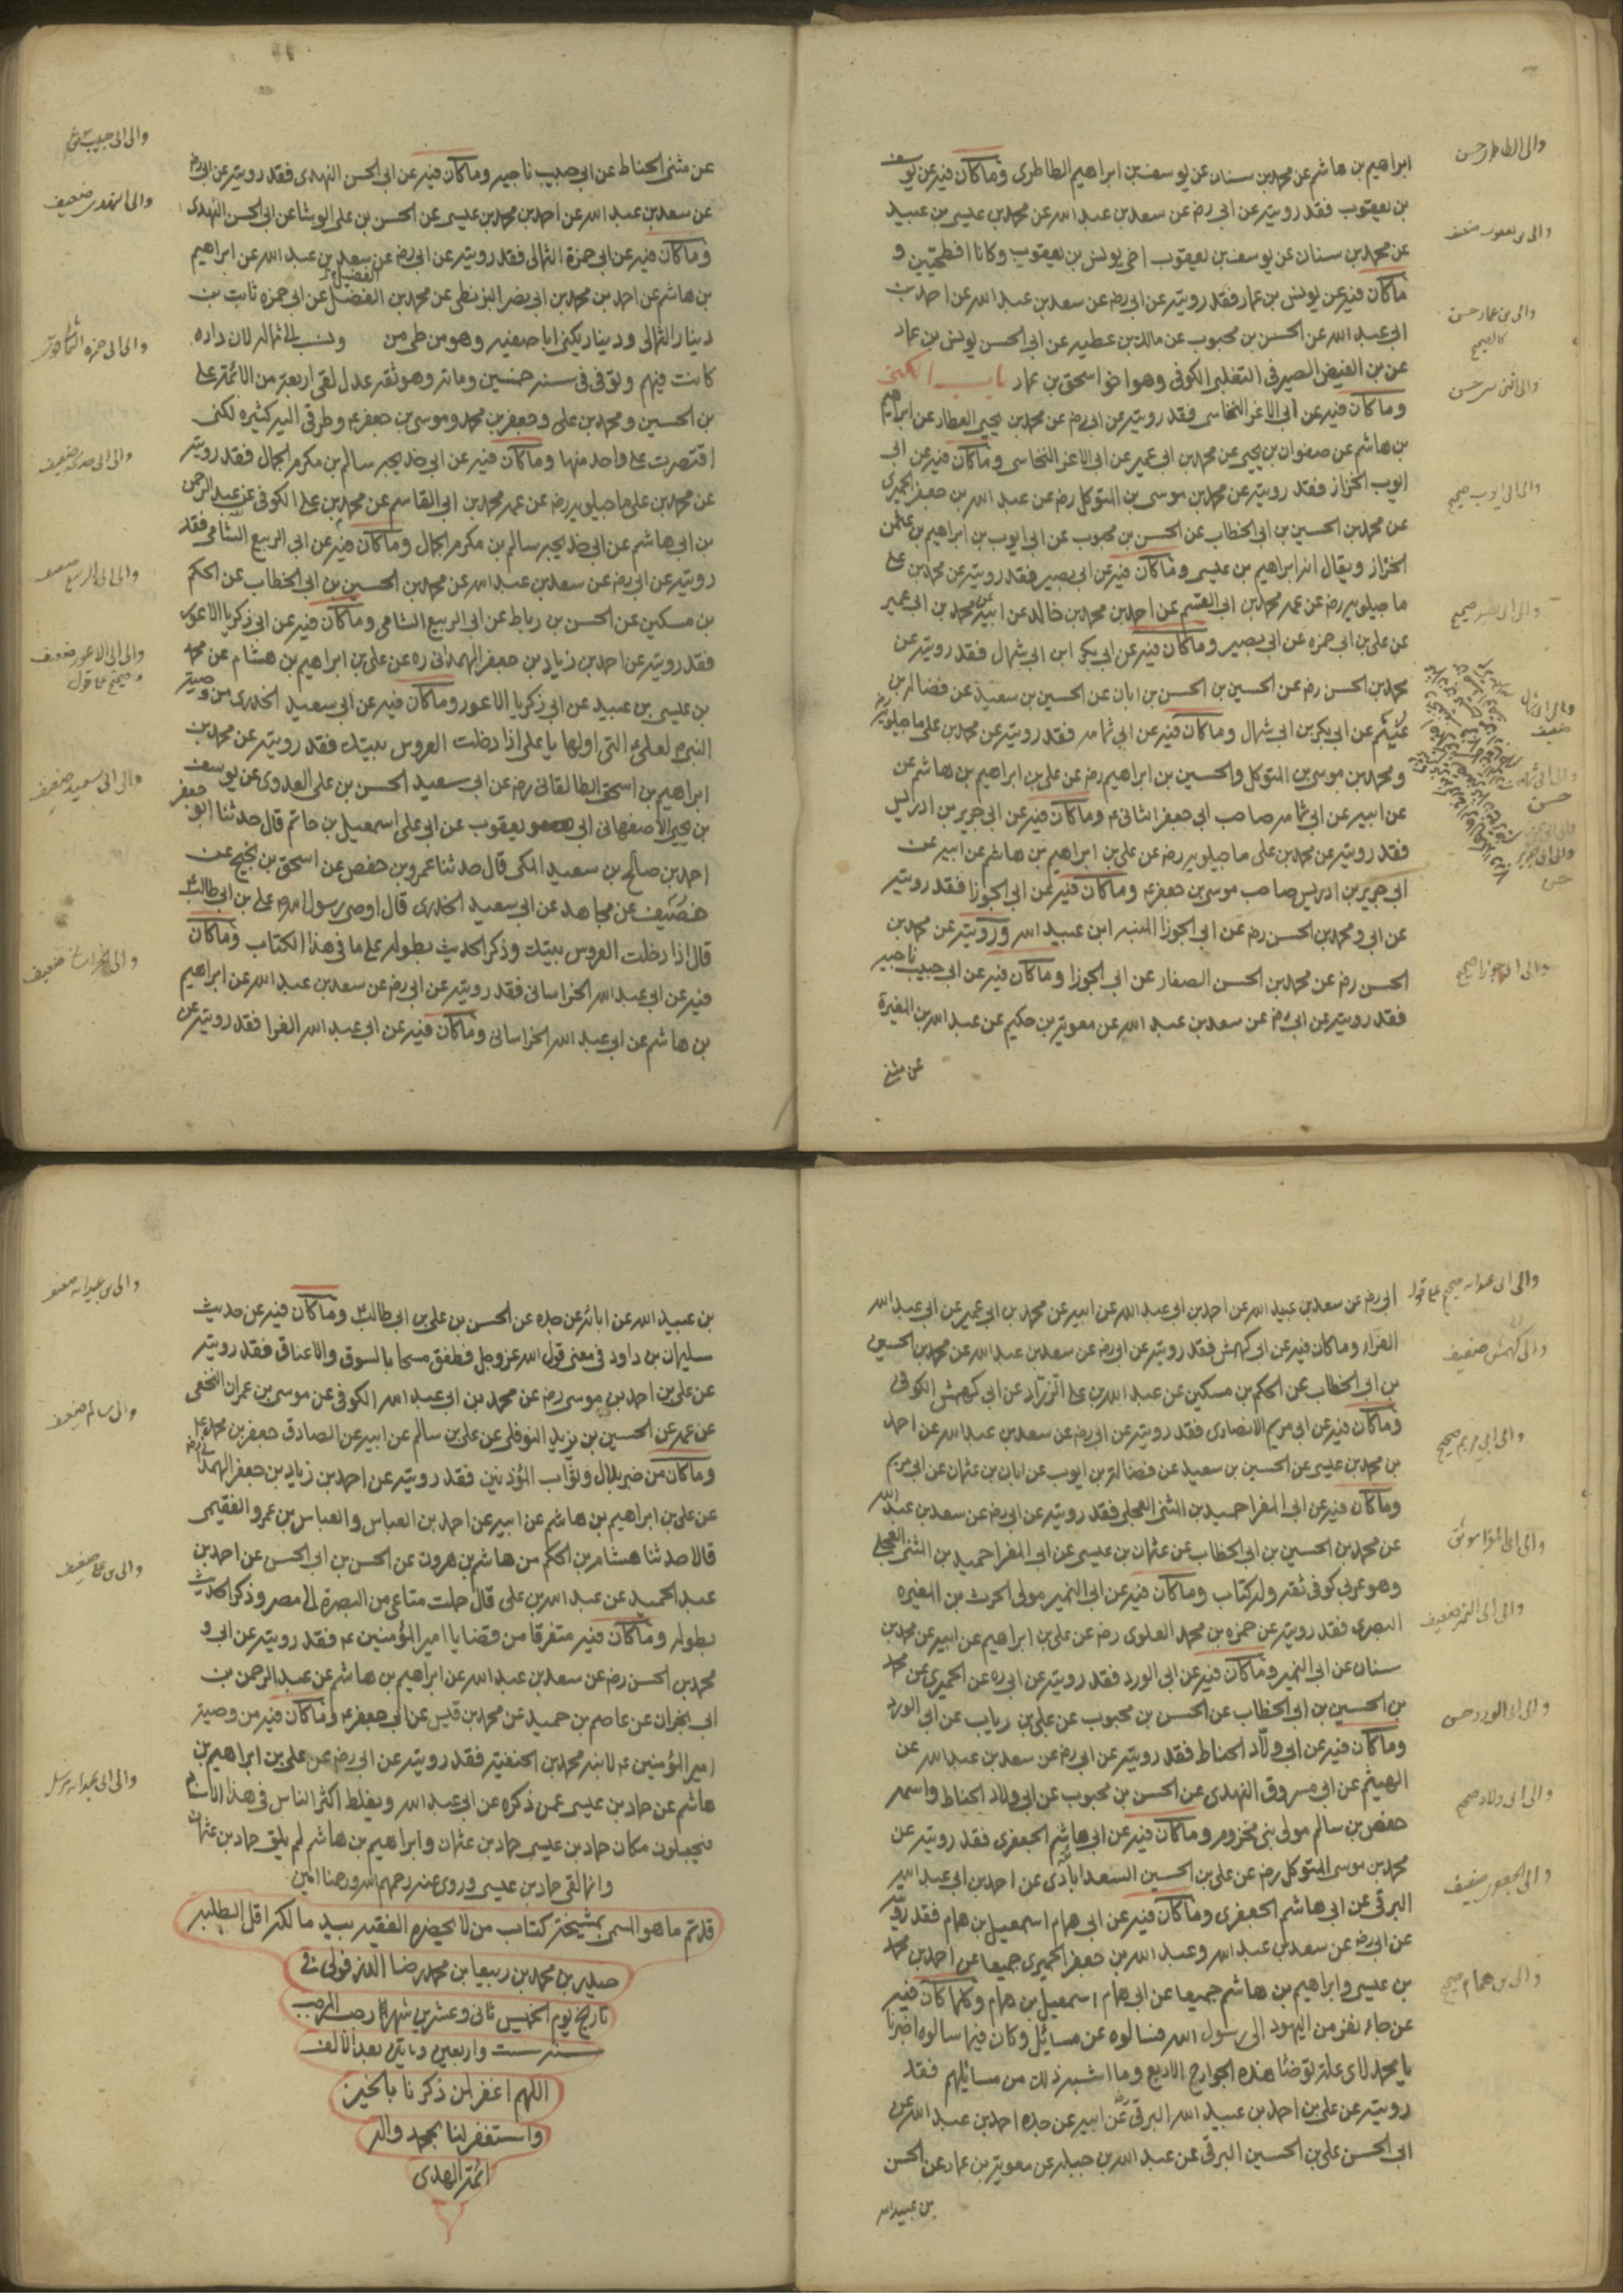 والى الطاطرى حسن
ابراهيم بن هاشم عن محمد بن سنان عن يوسف بن ابراهيم الطاطرى وماكان فيه عن يوسف
بن يعقوب فقد رويته عن ابى رض عن سعد بن عبد الله عن محمد بن عيسى بن عبيد
عن محمد بن سنان عن يوسف بن يعقوب اخى يونس بن يعقوب وكانا افطحيين و
ماكان فيه عن يونس بن عمار فقد رويته عن ابى رض عن سعد بن عبد الله عن احمد بن
ابى عبد الله عن الحسن بن محبوب عن مالك بن عطيه عن ابى الحسن يونس بن عمار
بن الفيض الصيرفى التغلبى الكوفى وهو اخو اسحق بن عمار باب الكنى
وماكان فيه عن ابى الاغر النخاس فقد رويته عن ابى رض عن محمد بن يحيى العطار عن ابراهيم
بن هاشم عن صفوان بن يحيى عن محمد بن ابى عمير عن ابى الاغر النخاس وماكان فيه عن ابى
ايوب الخزاز فقد رويته عن محمد بن موسى بن المتوكل رض عن عبد الله بن جعفر الحميرى
عن محمد بن الحسين بن ابى الخطاب عن الحسن بن محبوب عن ابى ايوب بن ابراهيم بن عثمن
الخزاز ويقال انه ابراهيم بن عيسى وماكان فيه عن ابى بصير فقد رويته عن محمد بن على
ماجيلويه رض عن عمه محمد بن ابى القسم عن احمد بن محمد بن خالد عن ابيه عن محمد بن ابى عمير
عن على بن ابى حمزه عن ابى بصير وماكان فيه عن ابى بكر ابن ابى شمال فقد رويته عن
محمد بن الحسن رض عن الحسين بن الحسن بن ابان عن الحسين بن سعيد عن فضالة بن
عن ابى بكر بن ابى شمال وماكان فيه عن ابى ثمامه فقد رويته عن محمد بن على ماجيلويه
ومحمد بن موسى بن المتوكل والحسين بن ابراهيم رض عن على بن ابراهيم بن هاشم عن
عن ابيه عن ابى ثمامه صاحب ابى جعفر الثانى ع وماكان فيه عن ابى جرير بن ادريس
فقد رويته عن محمد بن على ماجيلويه رض عن على بن ابراهيم بن هاشم عن ابيه عن
ابى جرير بن ادريس صاحب موسى بن جعفر ع وماكان فيه عن ابى الجوزا فقد رويته
عن ابى ومحمد بن الحسن رض عن ابى الجوزا المنبه ابن عبيد الله ورويته عن محمد بن
الحسن رض عن محمد بن الحسن الصفار عن ابى الجوزا وماكان فيه عن ابى حبيب ناجيه
فقد رويته عن ابى رض عن سعد بن عبد الله عن معويه بن حكيم عن عبد الله بن المغيرة
عن مثنى
والى ايوب صحيح
والى ابى بصير صحيح
عن مثنى الحناط عن ابى حبيب ناجيه وماكان فيه عن ابى الحسن النهدى فقد رويته عن ابى رض
عن سعد بن عبد الله عن احمد بن محمد بن عيسى عن الحسن بن على الوشا عن ابى الحسن النهدى
وماكان فيه عن ابى حمزة الثمالى فقد رويته عن ابى رض عن سعد بن عبد الله عن ابراهيم
بن هاشم عن احمد بن محمد بن ابى نصر البزنطى عن محمد بن الفضيل عن ابى حمزه ثابت بن
دينار الثمالى ودينار يكنى ابا صفيه وهو من طى من ونسب الى ثماله لان داره
كانت فيهم وتوفى فى سنه خمسين ومائه وهو ثقه عدل لقى اربعة من الائمة على
بن الحسين ومحمد بن على وجعفر بن محمد وموسى بن جعفر ع وطرقى اليه كثيره لكنى
اقتصرت على واحد منها وماكان فيه عن ابى خديجه سالم بن مكرم الجمال فقد رويته
عن محمد بن على ماجيلويه رض عن عمه محمد بن ابى القاسم عن محمد بن على الكوفى عن عبد الرحمن
بن ابى هاشم عن ابى خديجه سالم بن مكرم الجمال وماكان فيه عن ابى الربيع الشامى فقد
رويته عن ابى رض عن سعد بن عبد الله عن محمد بن الحسين بن ابى الخطاب عن الحكم
بن مسكين عن الحسن بن رباط عن ابى الربيع الشامى وماكان فيه عن ابى زكريا الاعور
فقد رويته عن احمد بن زياد بن جعفر الهمدانى ره عن على بن ابراهيم بن هشام عن محمد
بن عيسى بن عبيد عن ابى زكريا الاعور وماكان فيه عن ابى سعيد الخدرى من وصيه
النبى ص لعلى ع التى اولها يا على اذا دخلت العروس بيتك فقد رويته عن محمد بن
ابراهيم بن اسحق الطالقانى رض عن ابى سعيد الحسن بن على العدوى عن يوسف
بن يحيى الاصفهانى ابى يعقوب عن ابى على اسمعيل بن حاتم قال حدثنا ابو جعفر
احمد بن صالح بن سعيد المكى قال حدثنا عمرو بن حفص عن اسحق بن نجيح عن
خصيف عن مجاهد عن ابى سعيد الخدرى قال اوصى رسول الله ص على بن ابى طالب ع
قال اذا دخلت العروس بيتك وذكر الحديث بطوله على ما فى هذا الكتاب وماكان
فيه عن ابى عبد الله الخراسانى فقد رويته عن ابى رض عن سعد بن عبد الله عن ابراهيم
بن هاشم عن ابى عبد الله الخراسانى وماكان فيه عن ابى عبد الله الفرا فقد رويته عن
والى النهدى ضعيف
والى ابى سعيد ضعيف
ابى رض عن سعد بن عبد الله عن احمد بن ابى عبد الله عن ابيه عن محمد بن ابى عمير عن ابى عبد الله
الفراء وماكان فيه عن ابى كهمش فقد رويته عن ابى رض عن سعد بن عبد الله عن محمد بن الحسين
بن ابى الخطاب عن الحكم بن مسكين عن عبد الله بن على الزراد عن ابى كهمش الكوفى
وماكان فيه عن ابى مريم الانصارى فقد رويته عن ابى رض عن سعد بن عبد الله عن احمد
بن محمد بن عيسى عن الحسين بن سعيد عن فضالة بن ايوب عن ابان بن عثمان عن ابى مريم
وماكان فيه عن ابى المغرا حميد بن المثنى العجلى فقد رويته عن ابى رض عن سعد بن عبد الله
عن محمد بن الحسين بن ابى الخطاب عن عثمان بن عيسى عن ابى المغرا حميد بن المثنى العجلى
وهو عربى كوفى ثقه وله كتاب وماكان فيه عن ابى النمير مولى الحرث بن المغيره
النصرى فقد رويته عن حمزه بن محمد العلوى رض عن على بن ابراهيم عن ابيه عن محمد بن
سنان عن ابى النمير وماكان فيه عن ابى الورد فقد رويته عن ابى ره عن الحميرى عن محمد
بن الحسين بن ابى الخطاب عن الحسن بن محبوب عن على بن رياب عن ابى الورد
وماكان فيه عن ابى ولاد الحناط فقد رويته عن ابى رض عن سعد بن عبد الله عن
الهيثم عن ابى مسروق النهدى عن الحسن بن محبوب عن ابى ولاد الحناط واسمه
حفص بن سالم مولى بنى مخزوم وماكان فيه عن ابى هاشم الجعفرى فقد رويته عن
محمد بن موسى المتوكل رض عن على بن الحسين السعد ابادى عن احمد بن ابى عبد الله
البرقى عن ابى هاشم الجعفرى وماكان فيه عن ابى همام اسمعيل بن همام فقد رويته
عن ابى رض عن سعد بن عبد الله وعبد الله بن جعفر الحميرى جميعا عن احمد بن محمد
بن عيسى وابراهيم بن هاشم جميعا عن ابى همام اسمعيل بن همام وكلما كان فيه
عن جاء نفر من اليهود الى رسول الله فسالوه عن مسائل وكان فيما سالوه اخبرنا
يا محمد لاى علة توضئا هذه الجوارح الاربع وما اشبه ذلك من مسائلهم فقد
رويته عن على بن احمد بن عبيد الله البرقى رض عن ابيه عن جده احمد بن عبيد الله عن
ابى الحسن على بن الحسين البرقى عن عبد الله بن جبله عن معويه بن عمار عن الحسن
بن عبيد الله
والى كهمش ضعيف
والى ابى مريم صحيح
والى ابى النمير ضعيف
والى ابى الورد حسن
والى ابى ولاد صحيح
بن عبيد الله عن ابائه عن جده عن الحسن بن على بن ابى طالب ع وماكان فيه عن حديث
سليمان بن داود فى معنى قول الله عز وجل فطفق مسحا بالسوق والاعناق فقد رويته
عن على بن احمد بن موسى رض عن محمد بن ابى عبد الله الكوفى عن موسى بن عمران النخعى
عن عمه عن الحسين بن يزيد النوفلى عن على بن سالم عن ابيه عن الصادق جعفر بن محمد ع
وماكان من خبر بلال وثواب المؤذنين فقد رويته عن احمد بن زياد بن جعفر الهمدانى رض
عن على بن ابراهيم بن هاشم عن ابيه عن احمد بن العباس والعباس بن عمرو الفقيمى
قالا حدثنا هشام بن الحكم من هاشم بن هرون عن الحسن بن ابى الحسن عن احمد بن
عبد الحميد عن عبد الله بن على قال حملت متاعى من البصرة الى مصر وذكر الحديث
بطوله وماكان فيه متفرقا من قضايا امير المؤمنين ع فقد رويته عن ابى و
محمد بن الحسن رض عن سعد بن عبد الله عن ابراهيم بن هاشم عن عبد الرحمن بن
ابى نجران عن عاصم بن حميد عن محمد بن قيس عن ابى جعفر ع وماكان فيه من وصية
امير المؤمنين ع لابنه محمد بن الحنفيه فقد رويته عن ابى رض عن على بن ابراهيم بن
هاشم عن حماد بن عيسى عمن ذكره عن ابى عبد الله ويغلط اكثر الناس فى هذا الاسناد
فيجعلون مكان حماد بن عيسى حماد بن عثمان وابراهيم بن هاشم لم يلق حماد بن عثمان
وانما لقى حماد بن عيسى وروى عنه رحمهم الله ورحمنا امين
قد تم ما هو المسمى بمشيخة كتاب من لا يحضره الفقيه بيد مالكه اقل الطلبه
حيدر بن محمد بن ربيعا بن محمد رضا الدزفولى فى
تاريخ يوم الخميس ثانى وعشرين شهر رجب المرجب
سنه ست واربعين وماتين بعد الالف
اللهم اغفر لمن ذكرنا بالخير
واستغفر لنا بمحمد واله
ائمة الهدى
والى سالم ضعيف